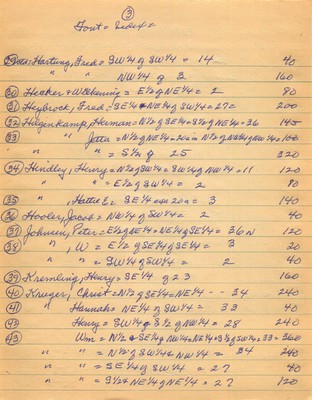 ③
Cont = Index =
29 Hartung, Fred = SW¼ of SW¼ = 14 40
" " NW¼ of 3 160
30 Hecker & Wibbening = E½ of NE¼ = 2 80
31 Heybrock, Fred = SE¼ & NE¼ of SW¼ = 27 = 200
32 Hagenkamp, Heiman = N½ of SE¼ = S½ of NE¼ = 36 145
33 " Jetta = N½ of NE¼ = 20a = N½ of NW¼ of NW¼ = 100
" " = S½ of 25 320
34 Hindley, Henry = N½ of SW¼ = SW¼ of NW¼ = 11 120
" " = E½ of SW¼ = 2 80
35 " , Hattie E = SE¼ 20a = 3 140
36 Hooler, Jacob = NW¼ of SW¼ = 2 40
37 Johnen, Peter = E½ of NE¼ = NE¼ of SE¼ = 36 120
38 " , W = E½ of SE¼ of SE¼ = 3 20
" " = SW¼ of SW¼ = 2 40
39 Kremling, Henry = SE¼ of 23 160
40 Krueger, Christ = N½ of SE¼ = NE¼ -- 34 240
41 " Hannah = NE¼ of SW¼ = 33 40
42 " Henry = SW¼ of S½ of NW¼ = 28 240
43 " Wm = N½ & SE¼ of NW¼ = NE¼ = S½ of SW¼ = 33 = 360
" " = N½ of SW¼ & NW¼ = 34 240
" " = SE¼ of SW¼ = 27 40
" " = S½ & NE¼ of NE¼ = 27 120